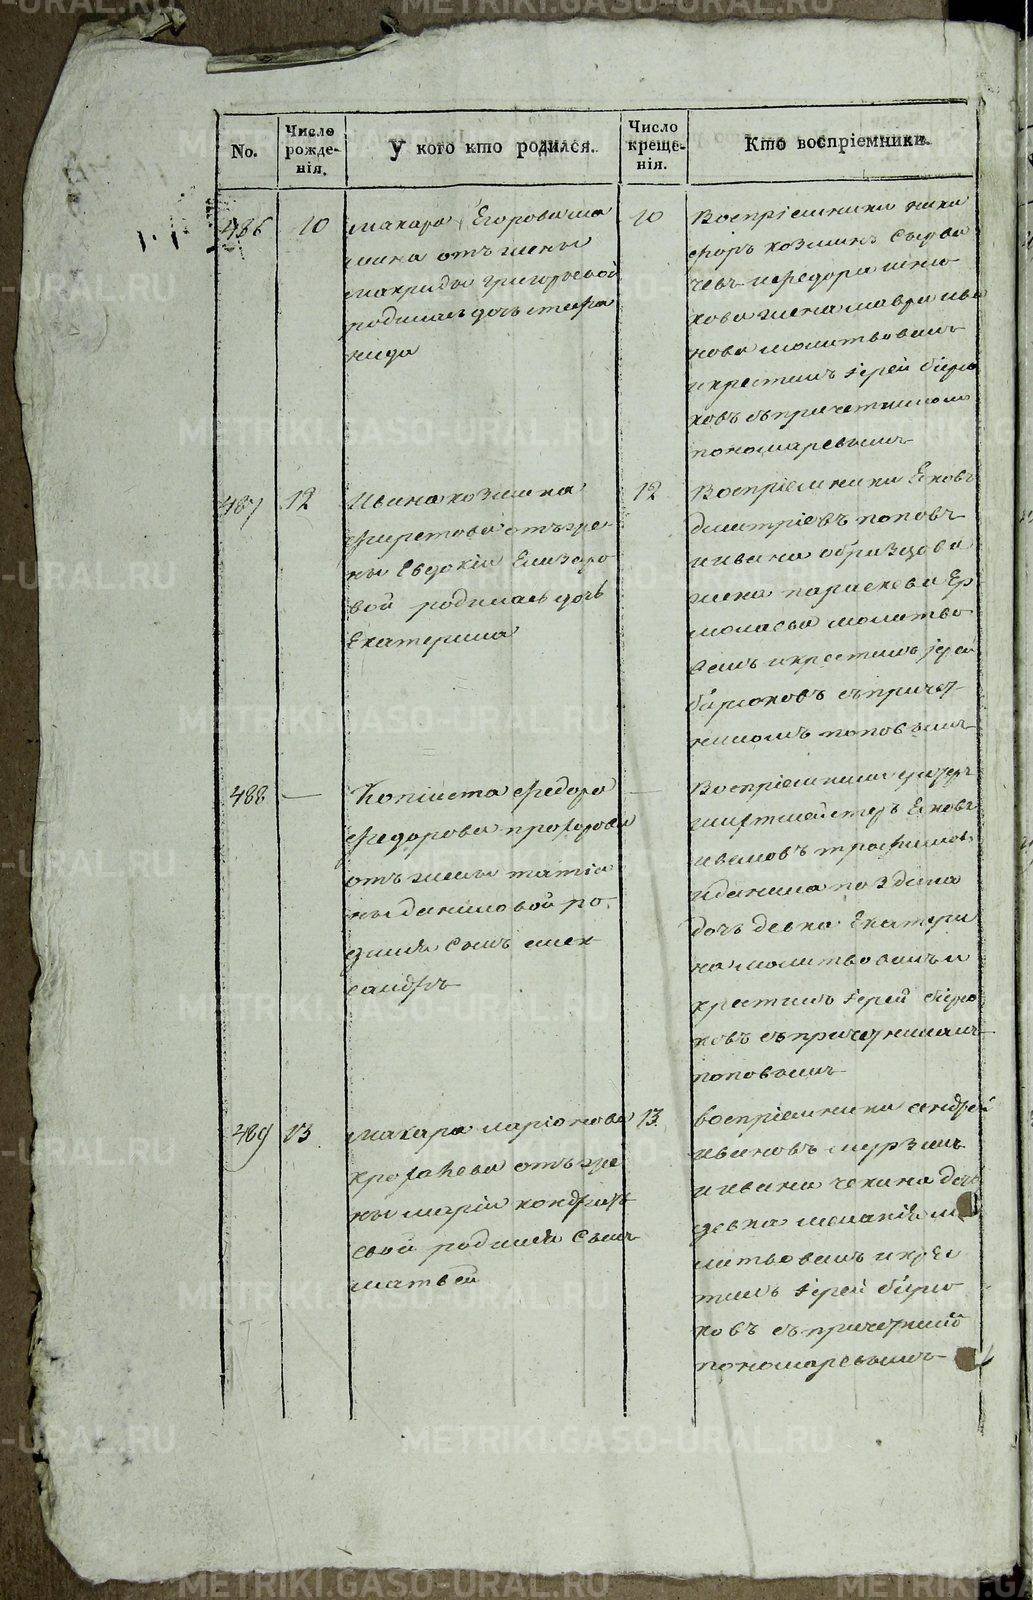 No.
Число рожде-нія.
У кого кто родился.
Число креще-нія.
Кто воспріемники.
486
10
макара Егорова ма
шина отъ жены
макриды григорьевой
родилась дочь степа
нида
10
Воспріемники ники
форъ козминъ
жена мавра ива
нова молитвовалъ
и крестилъ іерей бирю
ковъ съ причетникомъ
пономаревымъ
487
12
Ивана козмина
фиретова отъ же-
ны Евдокіи Елизаро
вой родилась дочь
Екатерина
12
Воспріемники Яковъ
дмитріевъ поповъ
и ивана образцова
жена параскева Ер
молаева молитво
валъ и крестилъ іерей
бирюковъ съ причет-
никомъ поповымъ
488
—
Копіиста федора
федорова прохорова
отъ жены татіа
ны даниловой ро-
дился сынъ алек
сандръ
—
Воспріемники унтеръ
шихтмейстеръ Яковъ
ивановъ трофимовъ
и данила поздина
дочь девка Екатери
на молитвовалъ и
крестилъ іерей бирю
ковъ съ причетникомъ
поповымъ
489
13
макара ларіонова
отъ же
ны маріи кондрать
евой родился сынъ
матвей
13
воспріемники андрей
ивановъ мурзинъ
и ивана чекина дочь
девка меланія мо
литвовалъ и крес
тилъ іерей бирю
ковъ съ причетники
пономаревымъ
METRIKI.GASO-URAL.RU